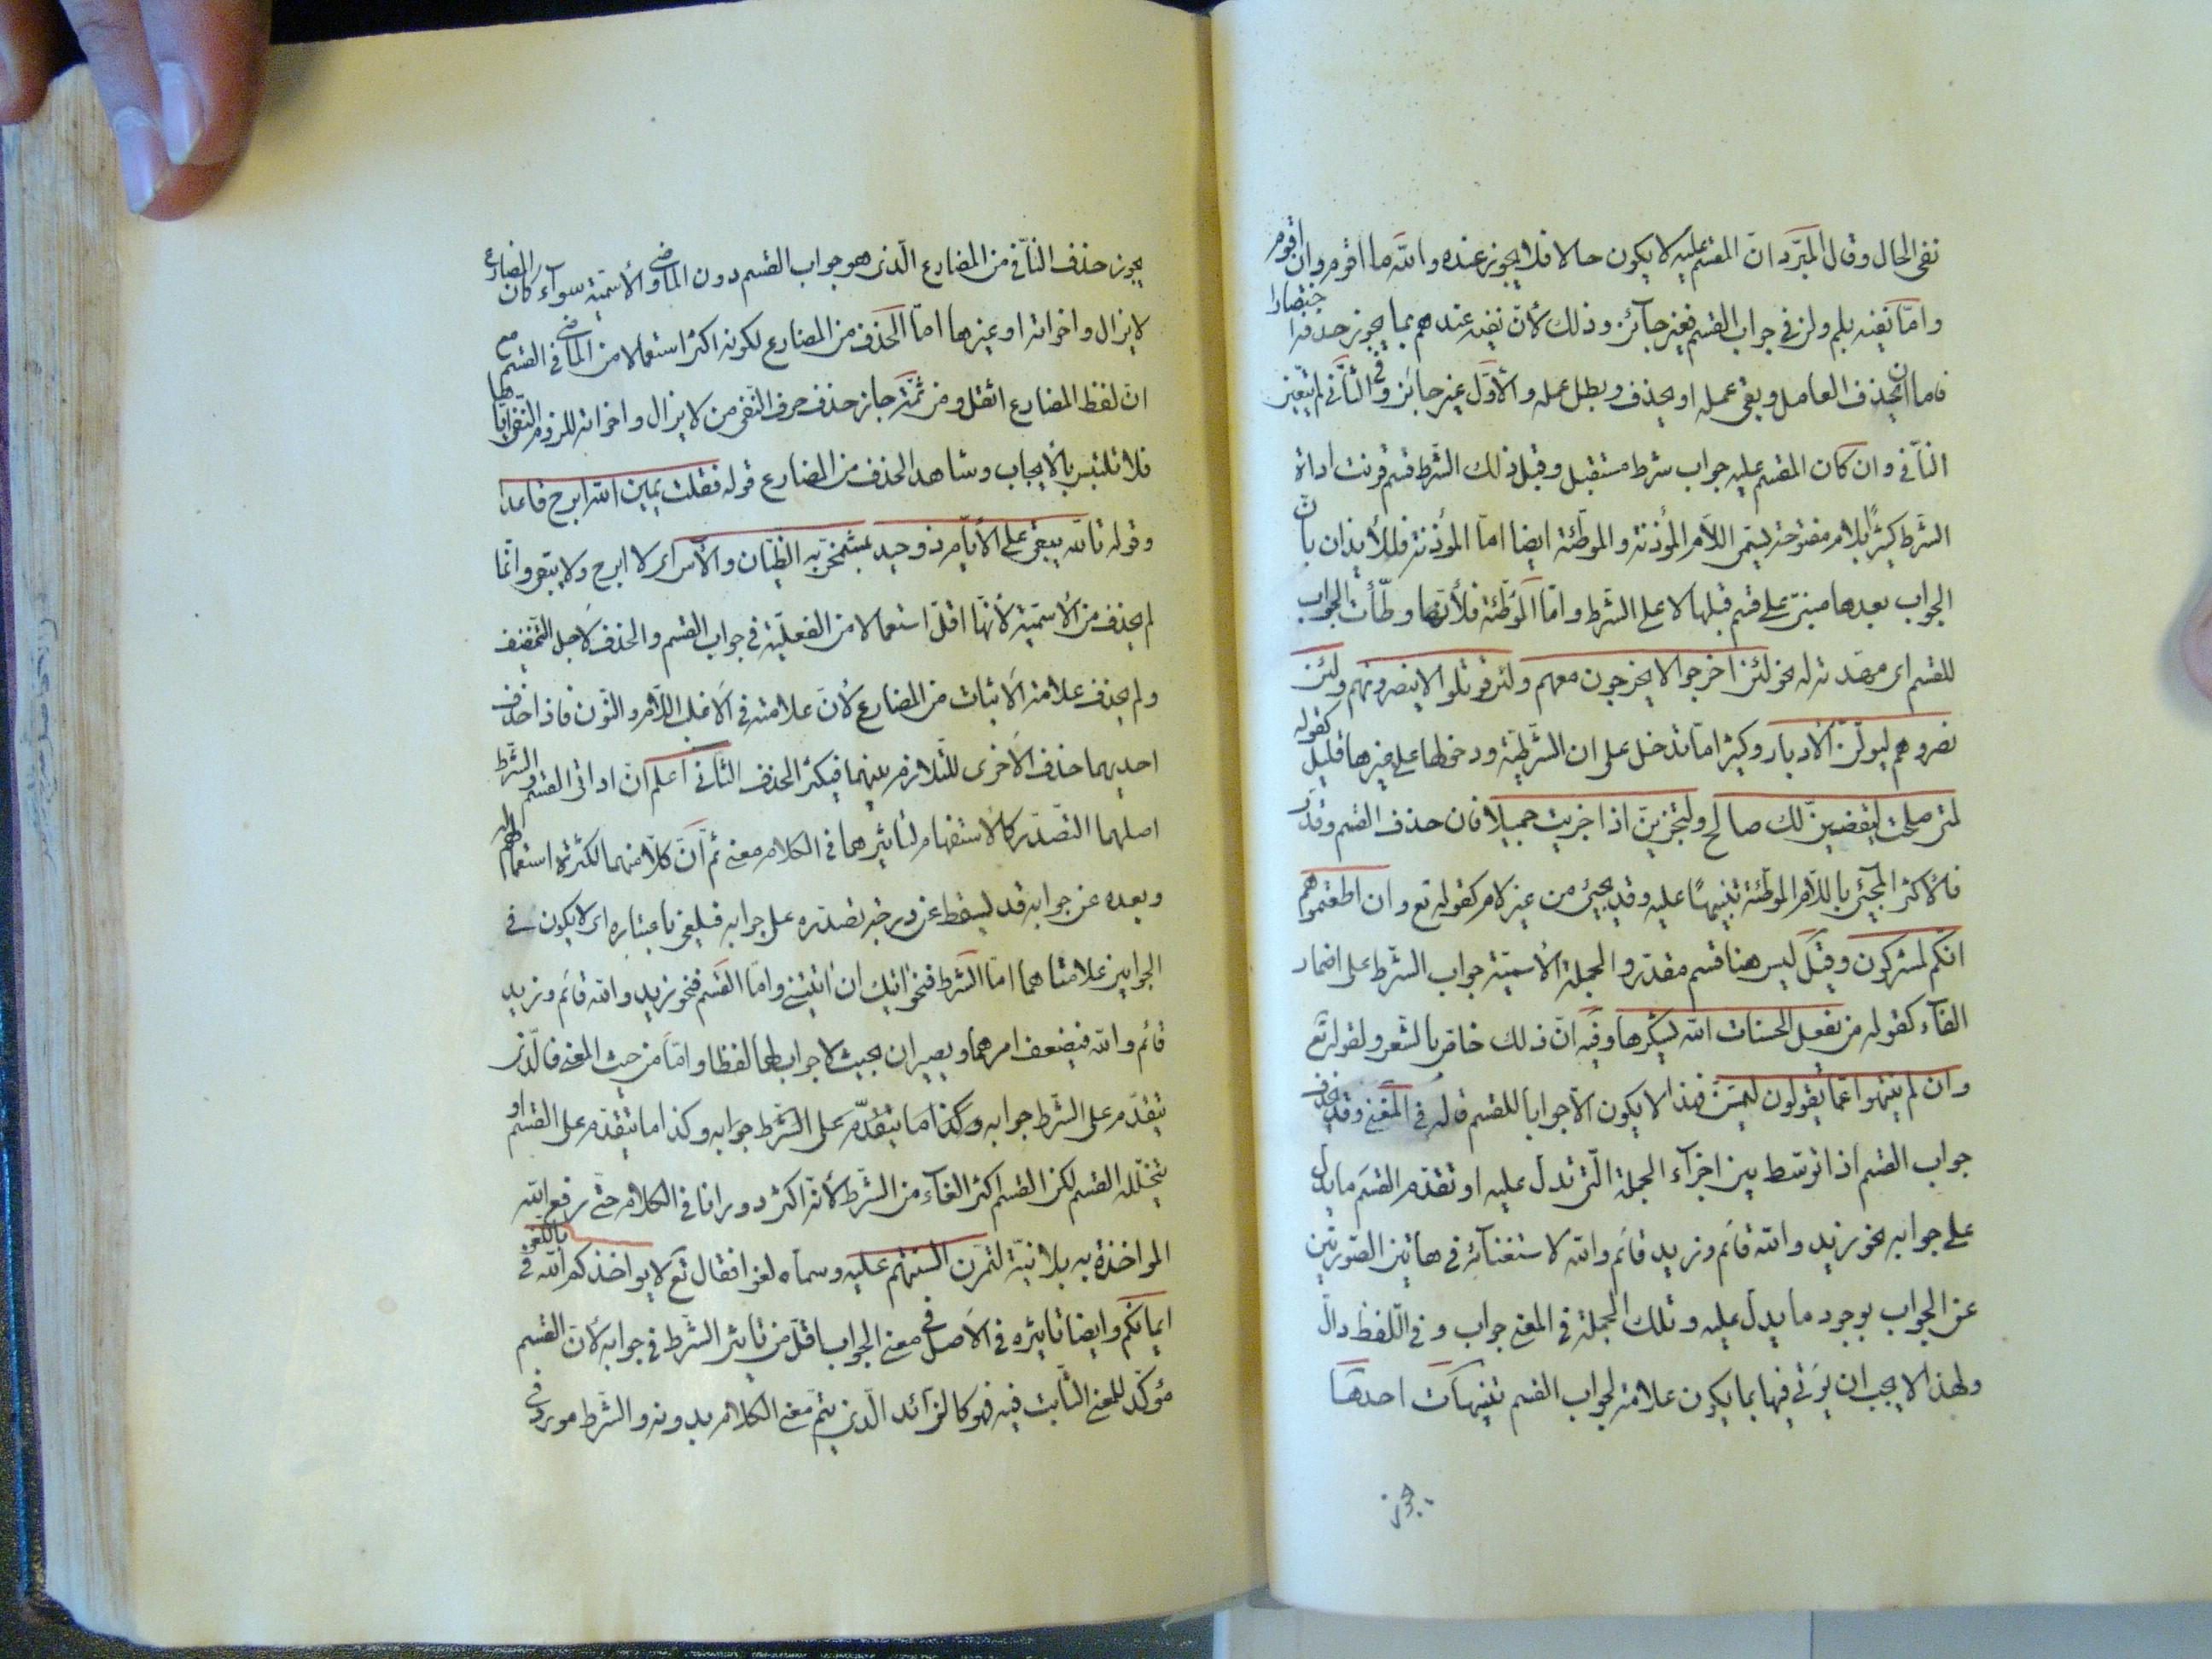 نفى الحال وقال المبرّد انّ المقسم عليه لا يكون حالا فلا يجوز عنده والله ما اقوم وان اقوم
وامّا نفيه بلم ولن فى جواب القسم فغير جآئز وذلك لأنّ نفيه عندهم بما يجوز حذفه اختصارا
فاما ان يحذف العامل ويبقى عمله او يحذف ويبطل عمله والأوّل غير جائز وفى الثّانى لم يتعيّن
النّافى وان كان المقسم عليه جواب شرط مستقبل وقبل ذلك الشّرط قسم قرنت اداة
الشّرط كثيرًا بلام مفتوحة ليسمّى اللّام المؤذنة والموطّئة ايضا امّا المؤذنة فللأيذان بأنّ
الجواب بعدها مبنىّ على قسم قبلها لا على الشّرط وامّا الموطّئة فلأنّها وطّأت الجواب
للقسم اى مهّدته له نحو لئن اخرجوا لا يخرجون معهم ولئن قوتلوا لا ينصرونهم ولئن
نصروهم ليولّنّ الأدبار وكثيرا ما تدخل على ان الشّرطيّة ودخولها على غيرها قليل كقوله
لمتى صلحت ليقضينّ لك صالح ولتجزينّ اذا جزيت جميلا فان حذف القسم وقدّر
فالأكثر المجيئ باللّام الموطّئة تنبيهًا عليه وقد يجيئ من غير لام كقوله تع وان اطعتموهم
انّكم لمشركون وقيل ليس هنا قسم مقدّر والجملة الأسميّة جواب الشّرط على اضمار
الفآء كقوله من يفعل الحسنات الله يشكرها وفيه انّ ذلك خاصّ بالشّعر ولقوله تع
وان لم ينتهوا عمّا يقولون ليمسّنّ فهذا لا يكون الّا جوابا للقسم قاله فى المغنى وقد يحذف
جواب القسم اذا توسّط بين اجزآء الجملة الّتى تدلّ عليه او تقدّم القسم ما يدلّ
على جوابه نحو زيد والله قائم وزيد قائم والله لاستغنآئه فى هاتين الصّورتين
عن الجواب بوجود ما يدلّ عليه وتلك الجملة فى المعنى جواب وفى اللّفظ دالّ
ولهذا لا يجب ان يؤتى فيها بما يكون علامة لجواب القسم تنبيهات احدها
يجوز
يجوز حذف النّافى من المضارع الّذى هو جواب القسم دون الماضى والأسميّة سوآء كان المضارع
لا يزال واخواته او غيرها امّا الحذف من المضارع لكونه اكثر استعمالا من الماضى فى القسم مع
انّ لفظ المضارع اثقل ومن ثمّة جاز حذف حرف النّفى من لا يزال واخواته للزوم النّفى ايّاها
فلا تلتبس بالأيجاب وشاهد الحذف من المضارع قوله فقلت يمين الله ابرح قاعدا
وقوله تالله يبقى على الأيّام ذو حيد بمشمخرّ به الظّيّان والآس اى لا ابرح ولا يبقى وانّما
لم يحذف من الأسميّة لأنّها اقلّ استعمالا من الفعليّة فى جواب القسم والحذف لأجل التّخفيف
ولم يحذف علامة الأثبات من المضارع لأنّ علامته فى الأغلب اللّام والنّون فاذا حذف
احديهما حذف الأخرى للتّلازم بينهما فيكثر الحذف الثّانى اعلم انّ اداتى القسم والشّرط
اصلهما التّصدّر كالأستفهام لتأثيرهما فى الكلام معنى ثمّ انّ كلّا منهما لكثرة استعمالهم له
وبعده عن جوابه قد يسقط عن درجة تصدّره على جوابه فيلغى باعتباره اى لا يكون فى
الجوابين علامتاهما امّا الشّرط فنحو اتيك ان اتيتنى وامّا القسم فنحو زيد والله قائم وزيد
قائم والله فيضعف امرهما ويصيران بحيث لا جواب لهما لفظا وامّا من حيث المعنى فالّذى
يتقدّم على الشّرط جوابه وكذا ما يتقدّم على الشّرط جوابه وكذا ما يتقدّم على القسم او
يتخلّله القسم لكن القسم اكثر الغآء من الشّرط لأنّه اكثر دورانا فى الكلام حتّى رفع الله
المواخذة به بلا نيّة لتمرّن السنتهم عليه وسماه لغوا فقال تع لا يواخذكم الله باللّغو فى
ايمانكم وايضا تاثيره فى الأصل فى معنى الجواب اقلّ من تاثير الشّرط فى جوابه لأنّ القسم
مؤكّد للمعنى الثّابت فيه فهو كالزّائد الّذى يتمّ معنى الكلام بدونه والشّرط مورد فى